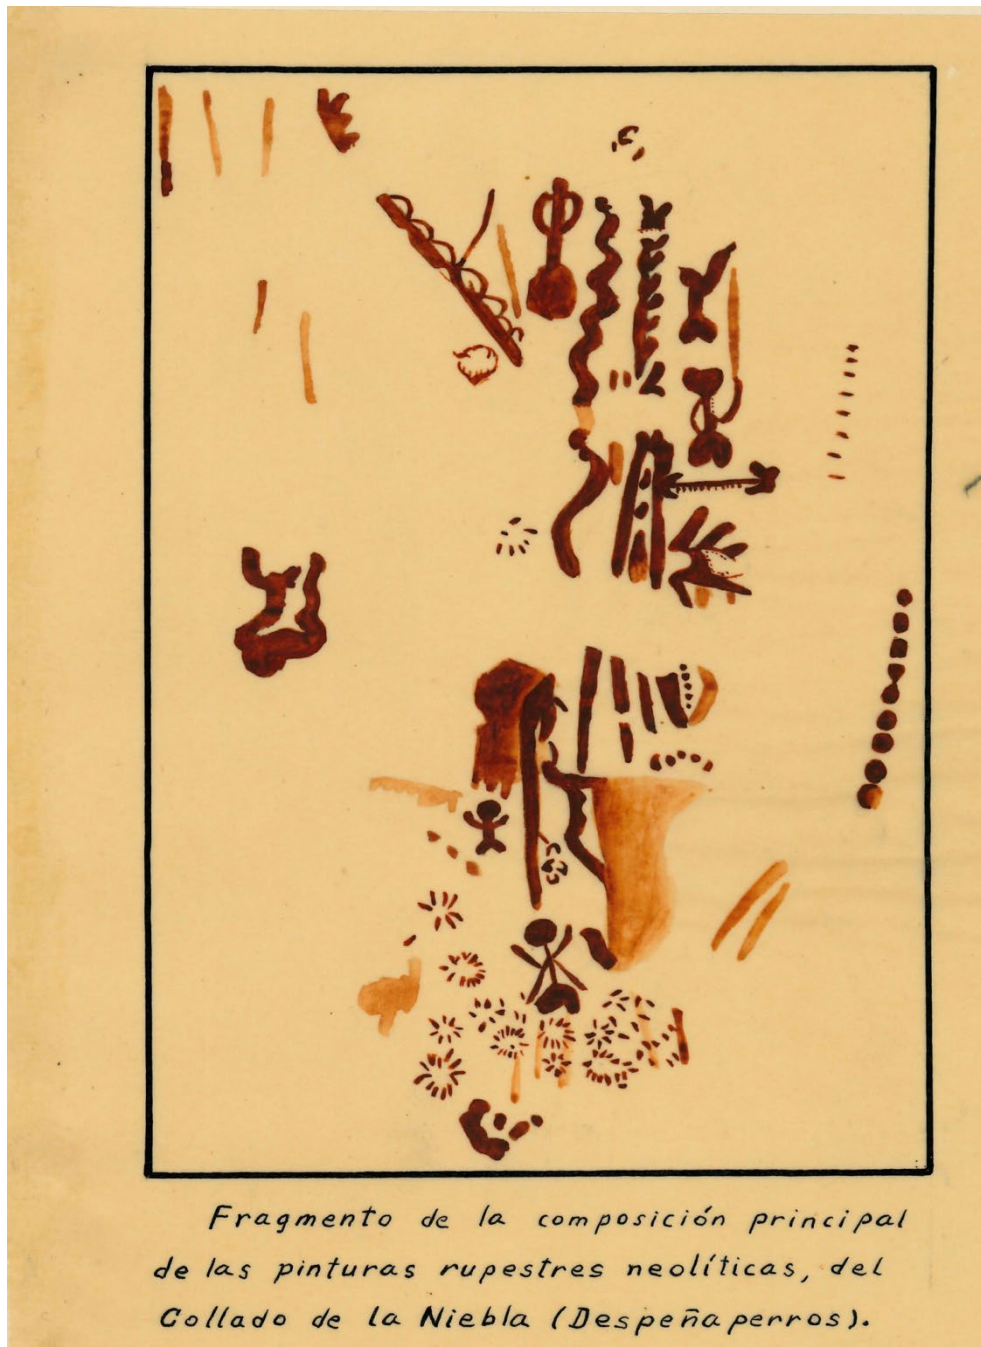 Fragmento de la composición principal
de las pinturas rupestres neolíticas, del
Collado de la Niebla (Despeñaperros).